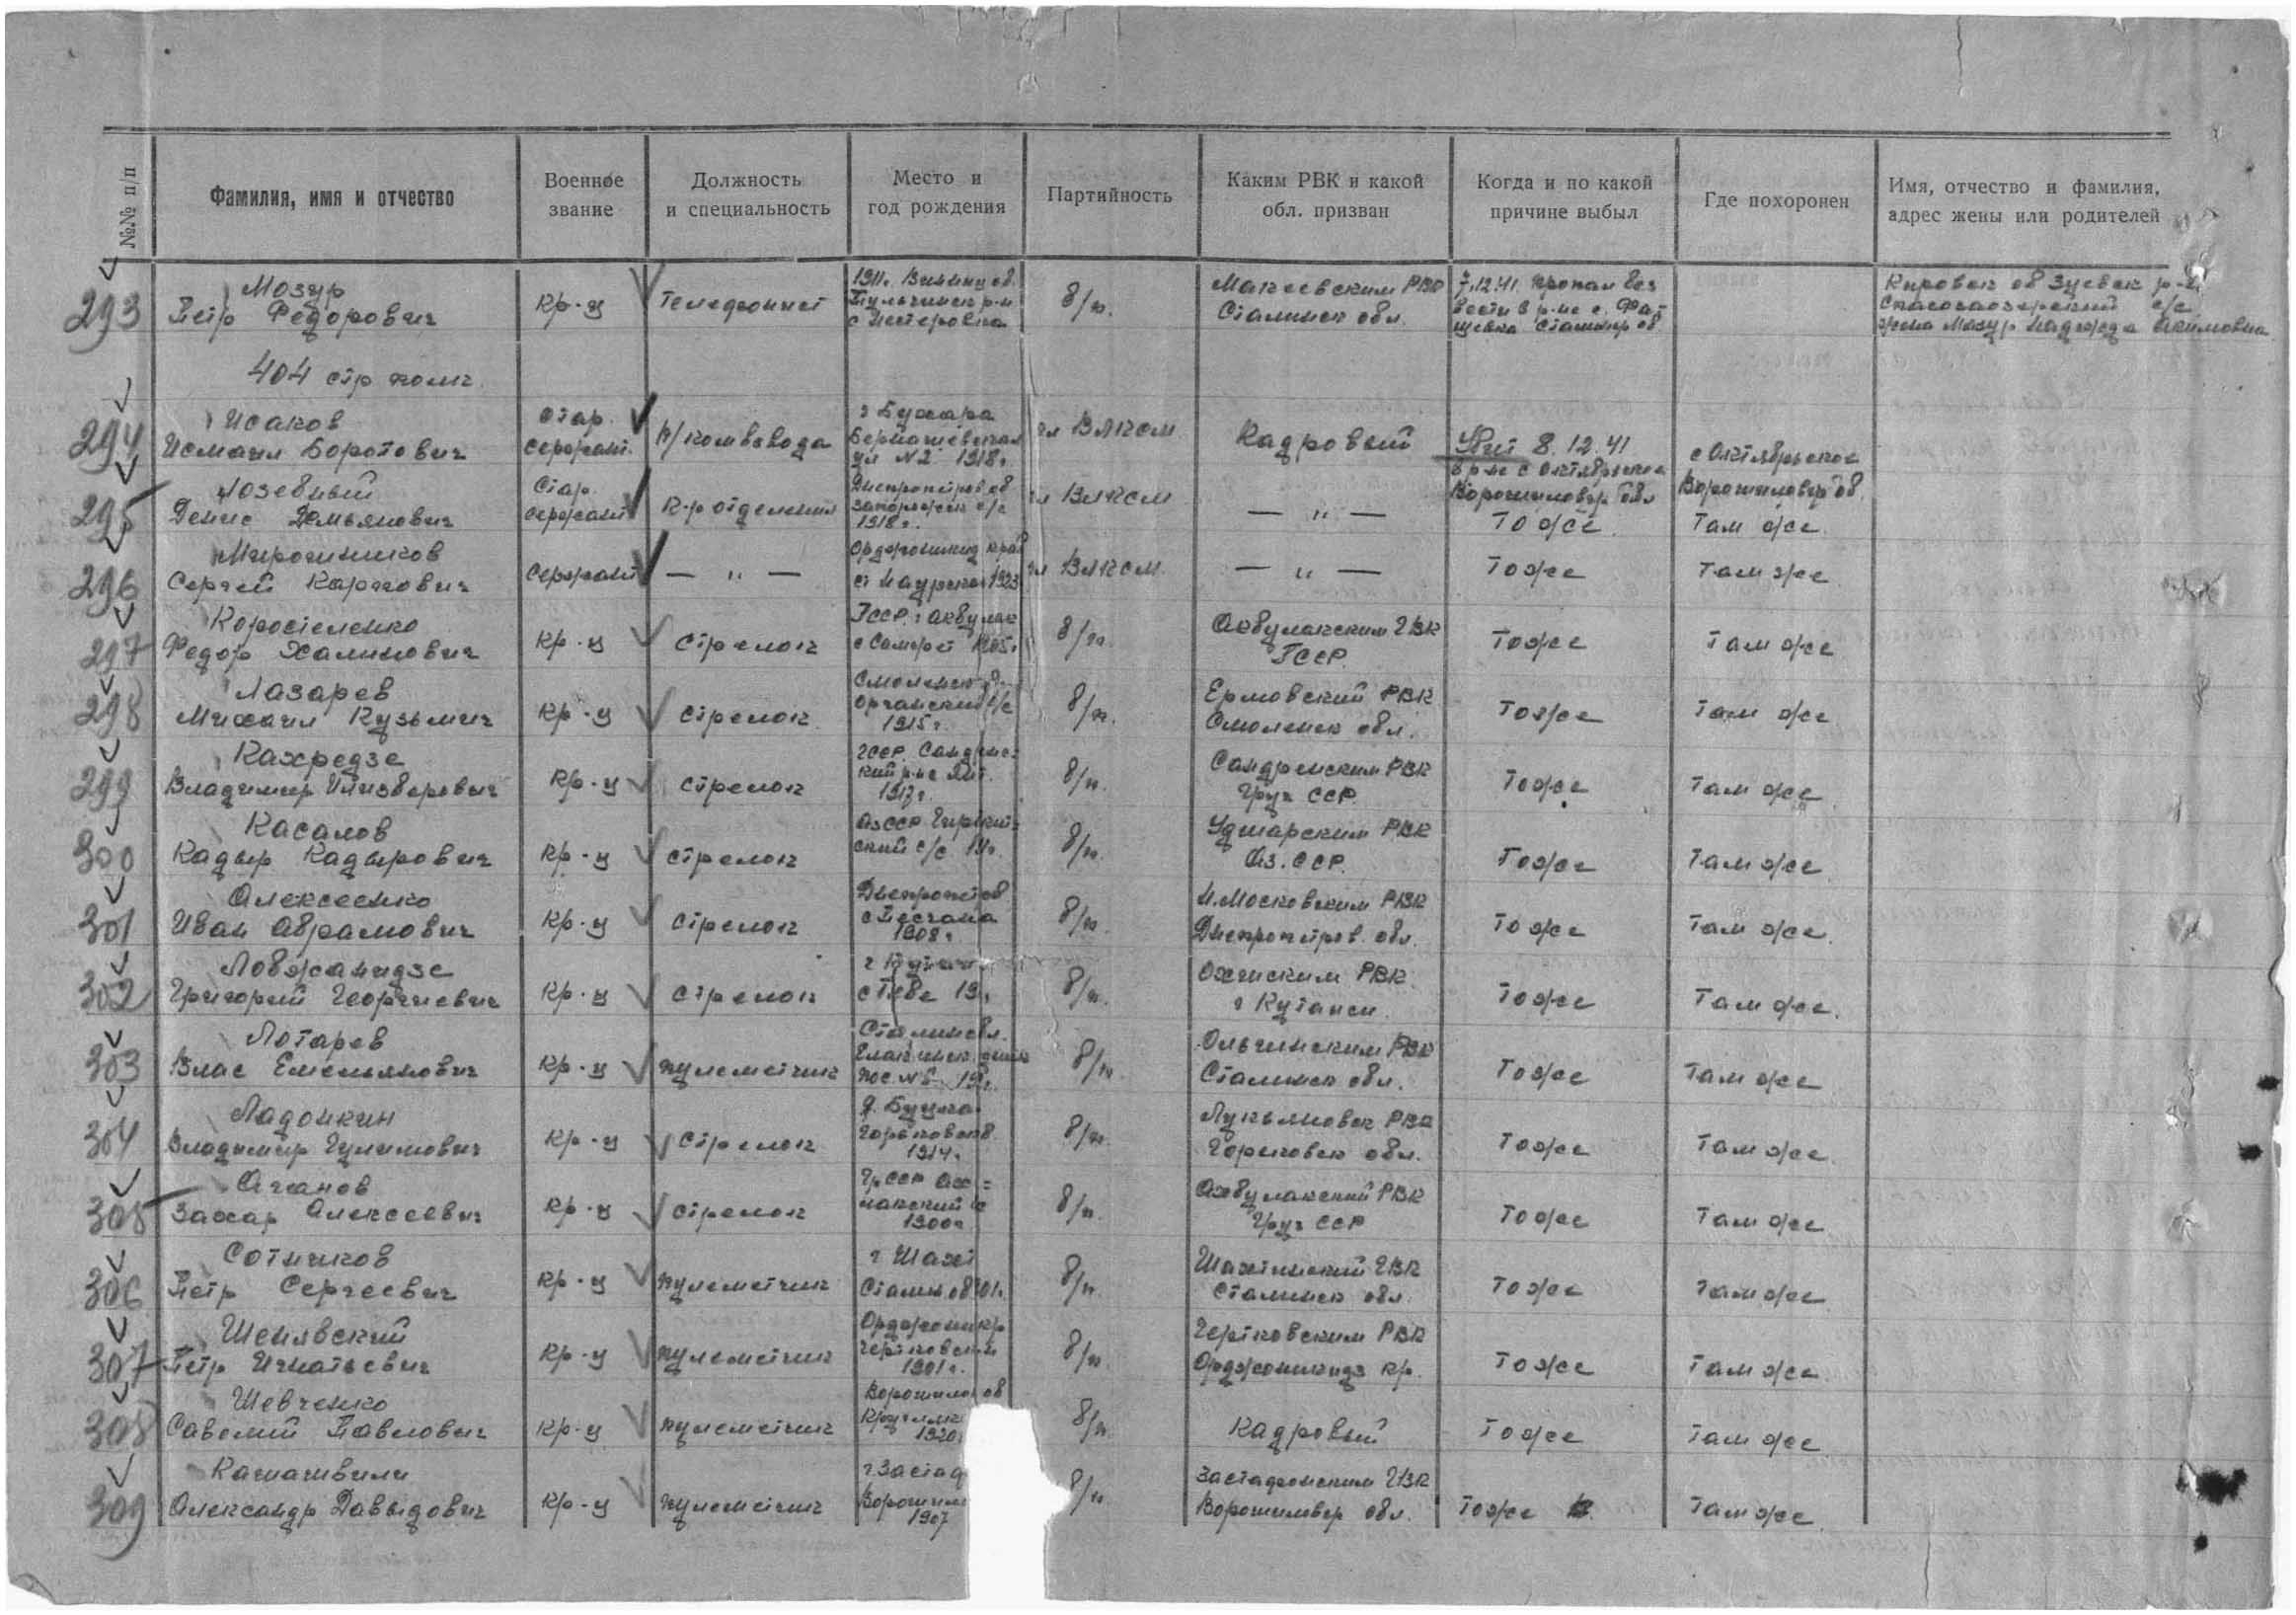 №№ п/п
Фамилия, имя и отчество
Военное
звание
Должность
и специальность
Место и
год рождения
Партийность
Каким РВК и какой
обл. призван
Когда и по какой
причине выбыл
Где похоронен
Имя, отчество и фамилия,
адрес жены или родителей
293
Мозур
Петр Федорович
Кр-ц
Телефонист
1911г. Винниц об.
Тульчинск р-н
с Нестеровка
б/п.
Макеевским РВК
Сталинск обл.
7.12.41. пропал без
вести в р-не с. Фа
щевка
Кировск об Зуевск р-н
с/с
жена Мазур Надежда Акимовна
404 стр полк
294
Исаков
Исмаил Боротович
Стар.
сержант.
п/комвзвода
г Бухара
ул №2 1918г
чл ВЛКСМ
Кадровый
Убит 8.12.41
в р-не с Октябрьское
Ворошиловгр обл
с Октябрьское
Ворошиловгр об.
295
Лозебный
Денис Демьянович
Стар.
сержант
К-р отделения
Днепропетров об
Запорожск с/с
1918г.
чл ВЛКСМ
— " —
То же.
Там же.
296
Мирошников
Сергей Карпович
Сержант
— " —
Орджоникид край
ст Наурская 1923
чл ВЛКСМ
— " —
То же
Там же.
297
Коростеленко
Федор
Кр-ц
Стрелок
ГССР. г Акбулак
1905г
б/п.
Акбулакским ГВК
ГССР.
То же
Там же
298
Лазарев
Михаил Кузьмич
Кр-ц
Стрелок
Смоленск о
с/с
1915г.
б/п.
Ермовский РВК
Смоленск обл.
То же
Там же
299
Кахредзе
Владимир
Кр-ц
Стрелок
ГССР.
б/п.
РВК
Груз ССР.
То же
Там же
300
Касалов
Кадыр Кадырович
Кр-ц
Стрелок
АзССР
ский с/с
б/п.
Уджарским РВК
Аз.ССР.
То же
Там же.
301
Алексеенко
Иван Абрамович
Кр-ц
Стрелок
Днепропет об
с Песчана
1908г
б/п.
Н.Московским РВК
Днепропетров. обл.
То же
Там же.
302
Лобжанидзе
Григорий Георгиевич
Кр-ц
Стрелок
б/п.
РВК.
г Кутаиси.
То же
Там же.
303
Лотарев
Влас Емельянович
Кр-ц
пулеметчик
Сталин обл.
пос. №5
б/п.
Ольгинским РВК
Сталинск обл.
То же
Там же
304
Ладонкин
Владимир
Кр-ц
Стрелок
1914г
б/п.
Лукьяновск РВК
Горьковск обл.
То же
Там же.
305
Аганов
Захар Алексеевич
Кр-ц
Стрелок
Гр.ССР Ах=
1900г
б/п.
РВК
Груз ССР
То же
Там же
306
Сотников
Петр Сергеевич
Кр-ц
пулеметчик
г Шахт
Сталин.об 01г.
б/п.
Шахтинский ГВК
Сталинск обл.
То же
Там же
307
Шенявский
Петр Игнатьевич
Кр-ц
пулеметчик
1901г.
б/п.
РВК
Орджоникидз кр.
То же
Там же
308
Шевченко
Савелий Павлович
Кр-ц
пулеметчик
Ворошилов об
1920г
б/п.
Кадровый
То же
Там же
309
Капашвили
Александр Давыдович
Кр-ц
пулеметчик
Ворошил
1907
б/п
ГВК
Ворошиловгр обл.
То же
Там же